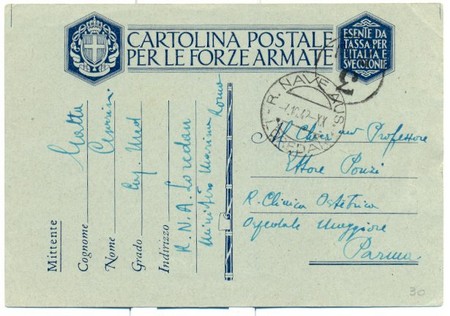 CARTOLINA POSTALE
PER LE FORZE ARMATE
ESENTE DA
TASSA PER
L'ITALIA E
SVE COLONIE
R. NAVE AUS.
LOREDAN
Mittente
Cognome
Nome
Grado
Indirizzo
R. N. A. Loredan
Ministero Marina Roma
Al Chiar.mo Professore
Ettore
R. Clinica Ostetrica
Ospedale Maggiore
Parma
30